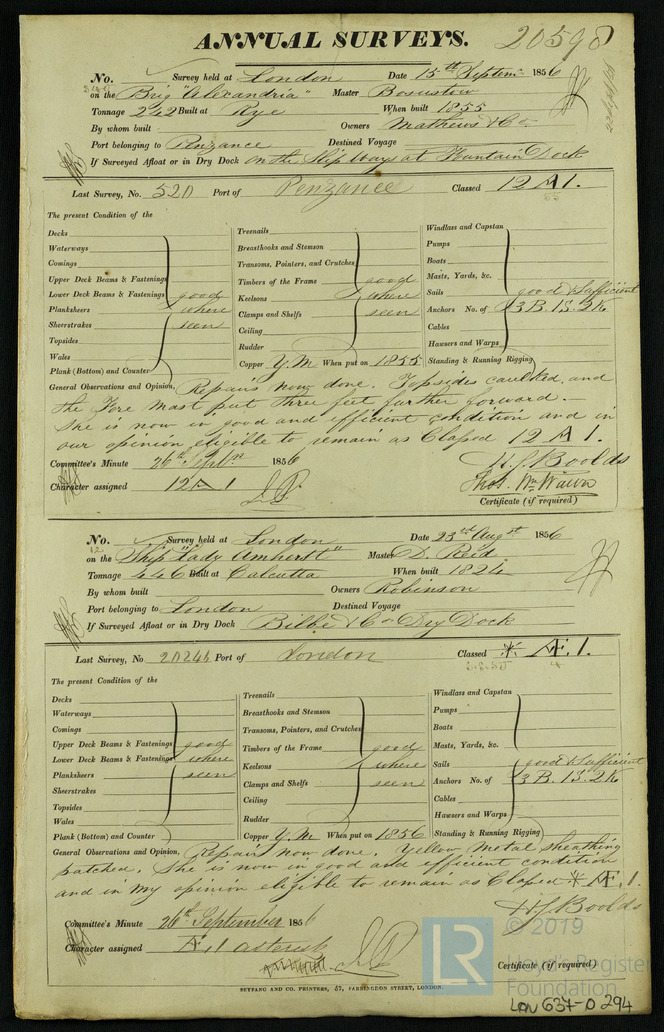 ANNUAL SURVEYS. 20598
No. Survey held at London Date 15th Septem. 1856
on the Brig "Alexandria" Master Bosustow
Tonnage 242 Built at Rye When built 1855
By whom built Owners Mathews & Co
Port belonging to Penzance Destined Voyage
If Surveyed Afloat or in Dry Dock on the Slip ways at Fountain Dock
Last Survey, No. 520 Port of Penzance Classed 12 A 1.
The present Condition of the
Decks
Waterways
Comings
Upper Deck Beams & Fastenings
Lower Deck Beams & Fastenings good
Planksheers where
Sheerstrakes seen
Topsides
Wales
Plank (Bottom) and Counter
Treenails
Breasthooks and Stemson
Transoms, Pointers, and Crutches
Timbers of the Frame good
Keelsons where
Clamps and Shelfs seen
Ceiling
Rudder
Copper Y.M When put on 1855
Windlass and Capstan
Pumps
Boats
Masts, Yards, &c.
Sails good & Sufficient
Anchors No. of 3 B. 1 S. 2 K
Cables
Hawsers and Warps
Standing & Running Rigging
General Observations and Opinion, Repairs now done. Topsides caulked, and
the Fore mast put three feet further forward. —
She is now in good and efficient condition and in
our opinion eligible to remain as Classed 12 A 1.
H. J. Boolds
Committee's Minute 26th Septr 1856
Character assigned 12 A 1
Certificate (if required)
No. Survey held at London Date 23rd Augst 1856
on the Ship "Lady Amherst" Master D. Reid
Tonnage 446 Built at Calcutta When built 1824
By whom built Owners Robinson
Port belonging to London Destined Voyage
If Surveyed Afloat or in Dry Dock Bilbe & Co Dry Dock
Last Survey, No 20246 Port of London Classed * Æ. 1.
The present Condition of the
Decks
Waterways
Comings
Upper Deck Beams & Fastenings good
Lower Deck Beams & Fastenings where
Planksheers seen
Sheerstrakes
Topsides
Wales
Plank (Bottom) and Counter
Treenails
Breasthooks and Stemson
Transoms, Pointers, and Crutches
Timbers of the Frame good
Keelsons where
Clamps and Shelfs seen
Ceiling
Rudder
Copper Y.M When put on 1856
Windlass and Capstan
Pumps
Boats
Masts, Yards, &c.
Sails good & Sufficient
Anchors No. of 3 B. 1 S. 2 K
Cables
Hawsers and Warps
Standing & Running Rigging
General Observations and Opinion, Repairs now done. Yellow metal sheathing
patched. She is now in good and efficient condition
and in my opinion eligible to remain as Classed * Æ. 1.
H J. Boolds
Committee's Minute 26th September 1856
Character assigned Æ. 1 asterisk
Certificate (if required)
SEYFANG AND CO. PRINTERS, 57, FARRINGDON STREET, LONDON.
LR © 2019
Lloyd's Register
Foundation
LON 637-0294